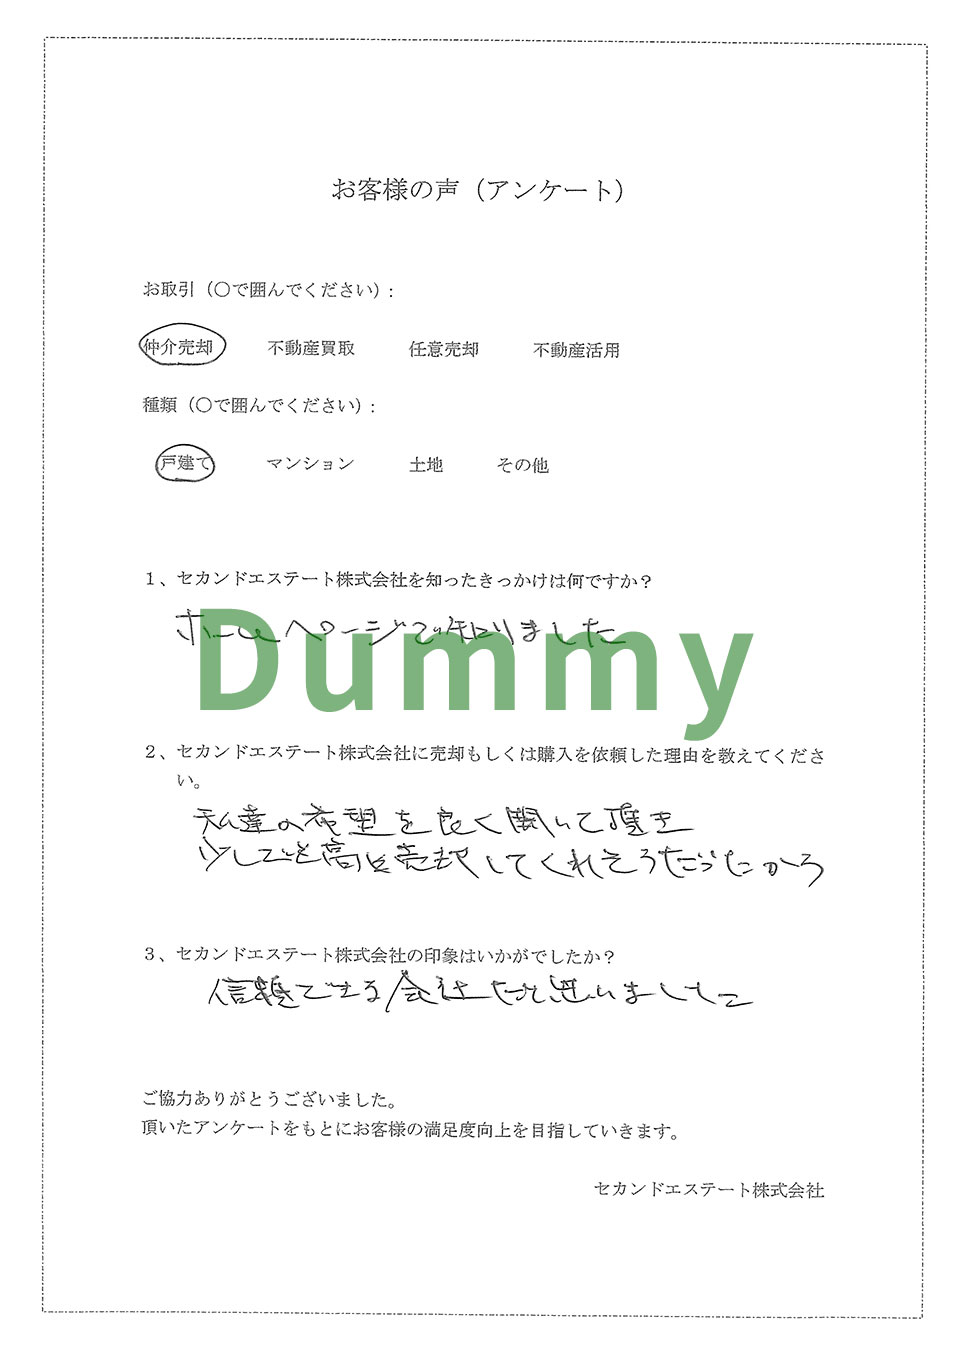 お客様の声（アンケート）
お取引（〇で囲んでください）:
仲介売却 不動産買取 任意売却 不動産活用
種類（〇で囲んでください）:
戸建て マンション 土地 その他
１、セカンドエステート株式会社を知ったきっかけは何ですか？
ホームページで知りました
Dummy
２、セカンドエステート株式会社に売却もしくは購入を依頼した理由を教えてくださ
い。
私達の希望を良く聞いて頂き
少しでも高く売却してくれそうだったから
３、セカンドエステート株式会社の印象はいかがでしたか？
信頼できる会社だと思いました
ご協力ありがとうございました。
頂いたアンケートをもとにお客様の満足度向上を目指していきます。
セカンドエステート株式会社